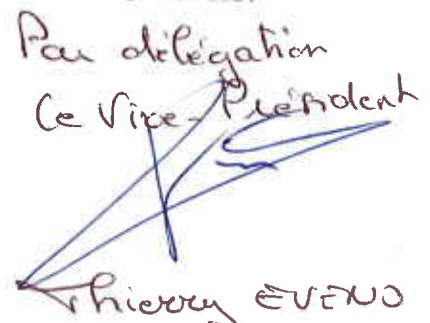 Par délégation
Le Vice-Président
Thierry EVENO